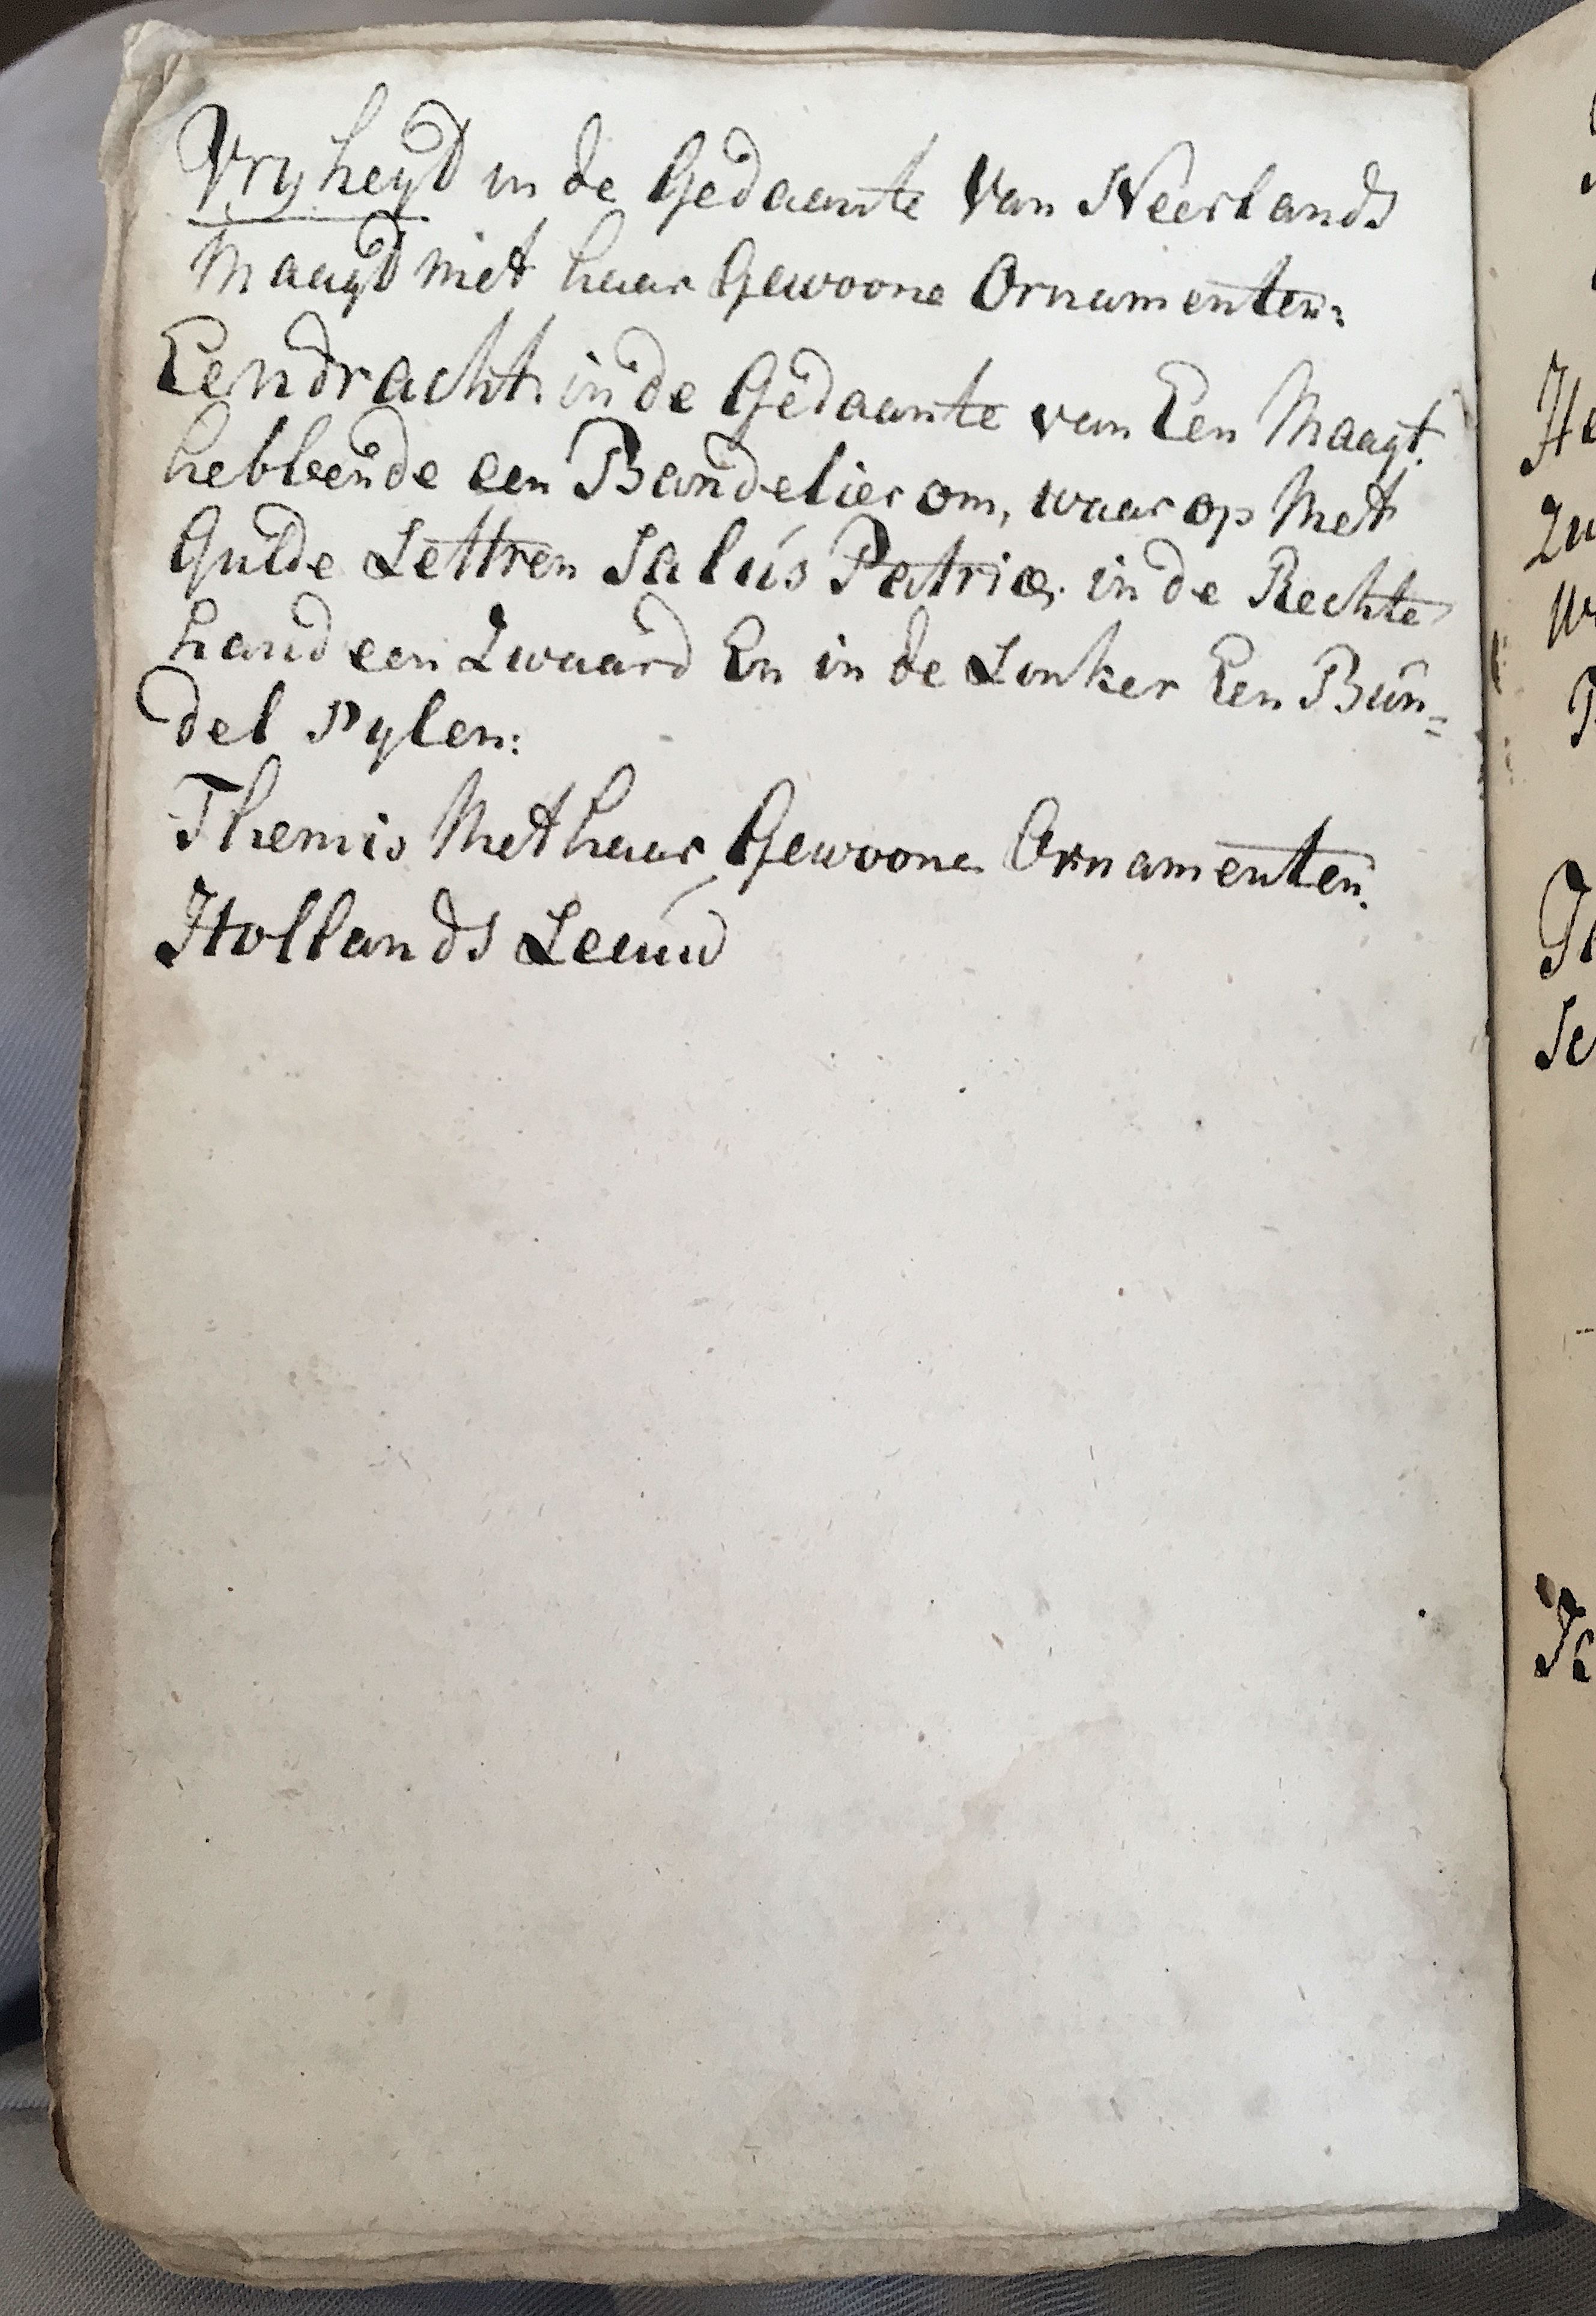 Vryheyd in de Gedaante Van Neerlands
Maagd met haar Gewoone Ornamenten:
Eendracht in de Gedaante van Een Maagt
hebbende een Bandelier om, waar op Met
Gulde Lettren Salús Patriæ, in de Rechte
hand een Zwaard En in de Linker Een Bun=
del Pylen:
Themis Met haar Gewoone Ornamenten.
Hollands Leeuw